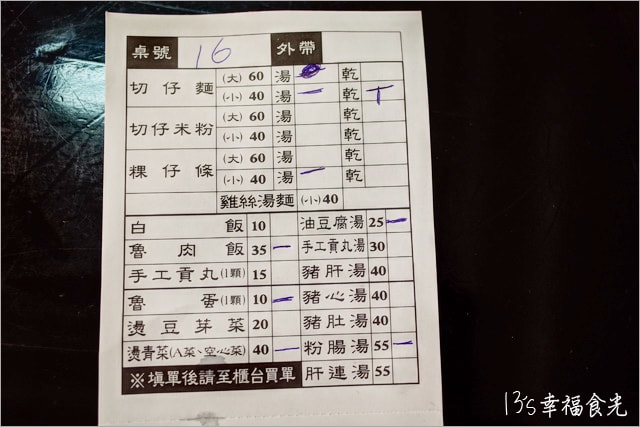 桌號 16 外帶
切仔麵 (大) 60 湯 乾
(小) 40 湯 一 乾 T
切仔米粉 (大) 60 湯 乾
(小) 40 湯 乾
粿仔條 (大) 60 湯 乾
(小) 40 湯 一 乾
雞絲湯麵 (小) 40
白飯 10 油豆腐湯 25 一
魯肉飯 35 一 手工貢丸湯 30
手工貢丸(1顆) 15 豬肝湯 40
魯蛋(1顆) 10 一 豬心湯 40
燙豆芽菜 20 豬肚湯 40
燙青菜(A菜、空心菜) 40 一 粉腸湯 55 一
※填單後請至櫃台買單 肝連湯 55
13's幸福食光